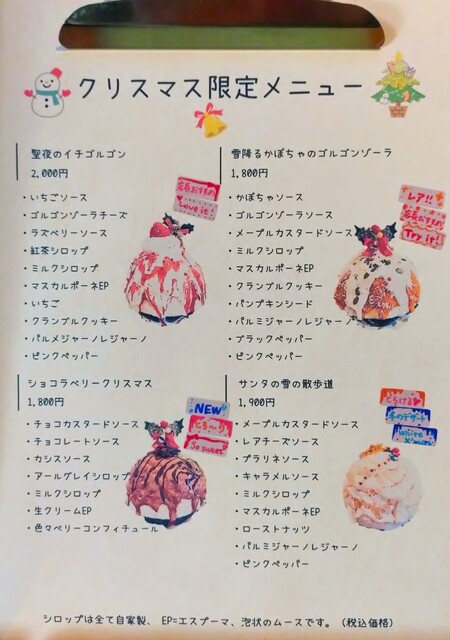 クリスマス限定メニュー
聖夜のイチゴルゴン
2,000円
・いちごソース
・ゴルゴンゾーラチーズ
・ラズベリーソース
・紅茶シロップ
・ミルクシロップ
・マスカルポーネEP
・いちご
・クランブルクッキー
・パルメジャーノレジャーノ
・ピンクペッパー
店長おすすめ
Love it!
雪降るかぼちゃのゴルゴンゾーラ
1,800円
・かぼちゃソース
・ゴルゴンゾーラソース
・メープルカスタードソース
・ミルクシロップ
・マスカルポーネEP
・クランブルクッキー
・パンプキンシード
・パルミジャーノレジャーノ
・ブラックペッパー
・ピンクペッパー
レア!!
店長おすすめ
Try it!
ショコラベリークリスマス
1,800円
・チョコカスタードソース
・チョコレートソース
・カシスソース
・アールグレイシロップ
・ミルクシロップ
・生クリームEP
・色々ベリーコンフィチュール
NEW
とろ〜り
So sweet
サンタの雪の散歩道
1,900円
・メープルカスタードソース
・レアチーズソース
・プラリネソース
・キャラメルソース
・ミルクシロップ
・マスカルポーネEP
・ローストナッツ
・パルミジャーノレジャーノ
・ピンクペッパー
とろける
冬のデザート
White
X'mas
シロップは全て自家製、 EP=エスプーマ、泡状のムースです。（税込価格）